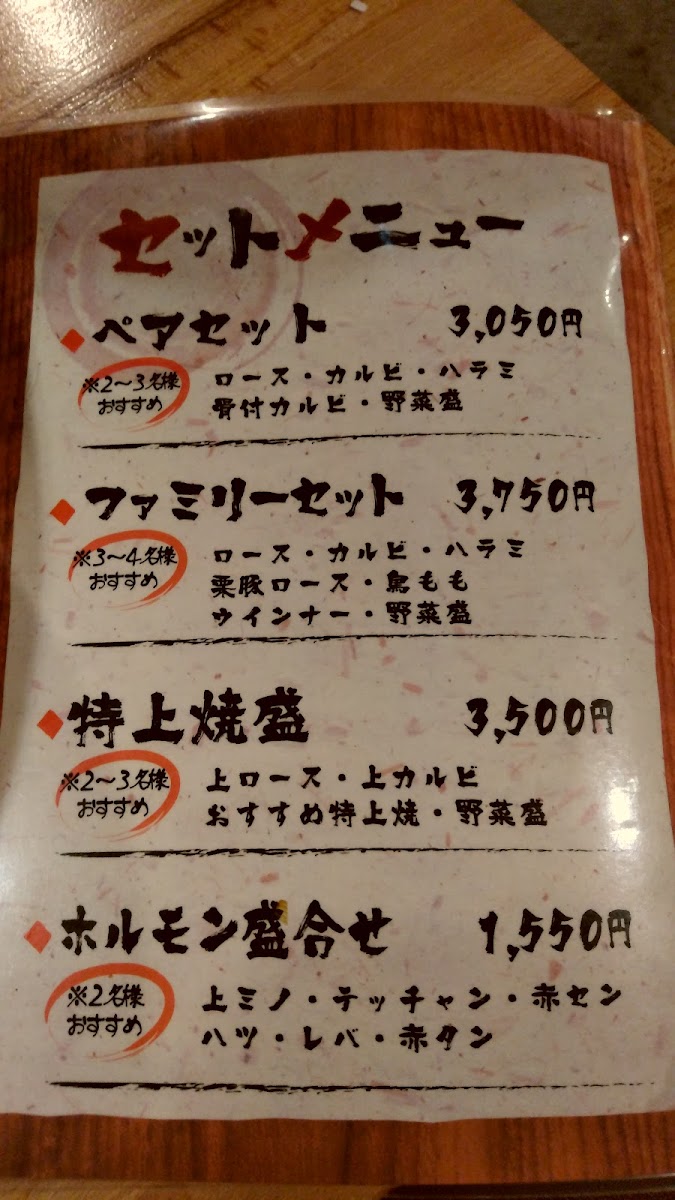 セットメニュー
◆ペアセット 3,050円
※2〜3名様
おすすめ
ロース・カルビ・ハラミ
骨付カルビ・野菜盛
◆ファミリーセット 3,750円
※3〜4名様
おすすめ
ロース・カルビ・ハラミ
栗豚ロース・鳥もも
ウインナー・野菜盛
◆特上焼盛 3,500円
※2〜3名様
おすすめ
上ロース・上カルビ
おすすめ特上焼・野菜盛
◆ホルモン盛合せ 1,550円
※2名様
おすすめ
上ミノ・テッチャン・赤セン
ハツ・レバ・赤タン